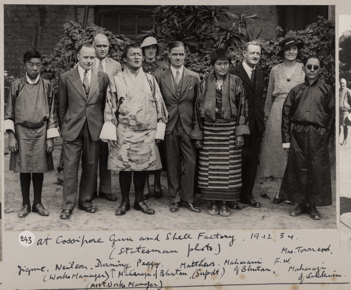 243
at Cossipore Gun and Shell Factory. 1932 34.
(Statesman photo)
Mrs. Townend,
Jigme, Neilson, Dunning, Peggy Matthews, Maharani F.W.
(Works Manager) Maharaja of Bhutan, (Supdt.) of Bhutan, Maharaja
(Asst Works Manager) of Sikkim